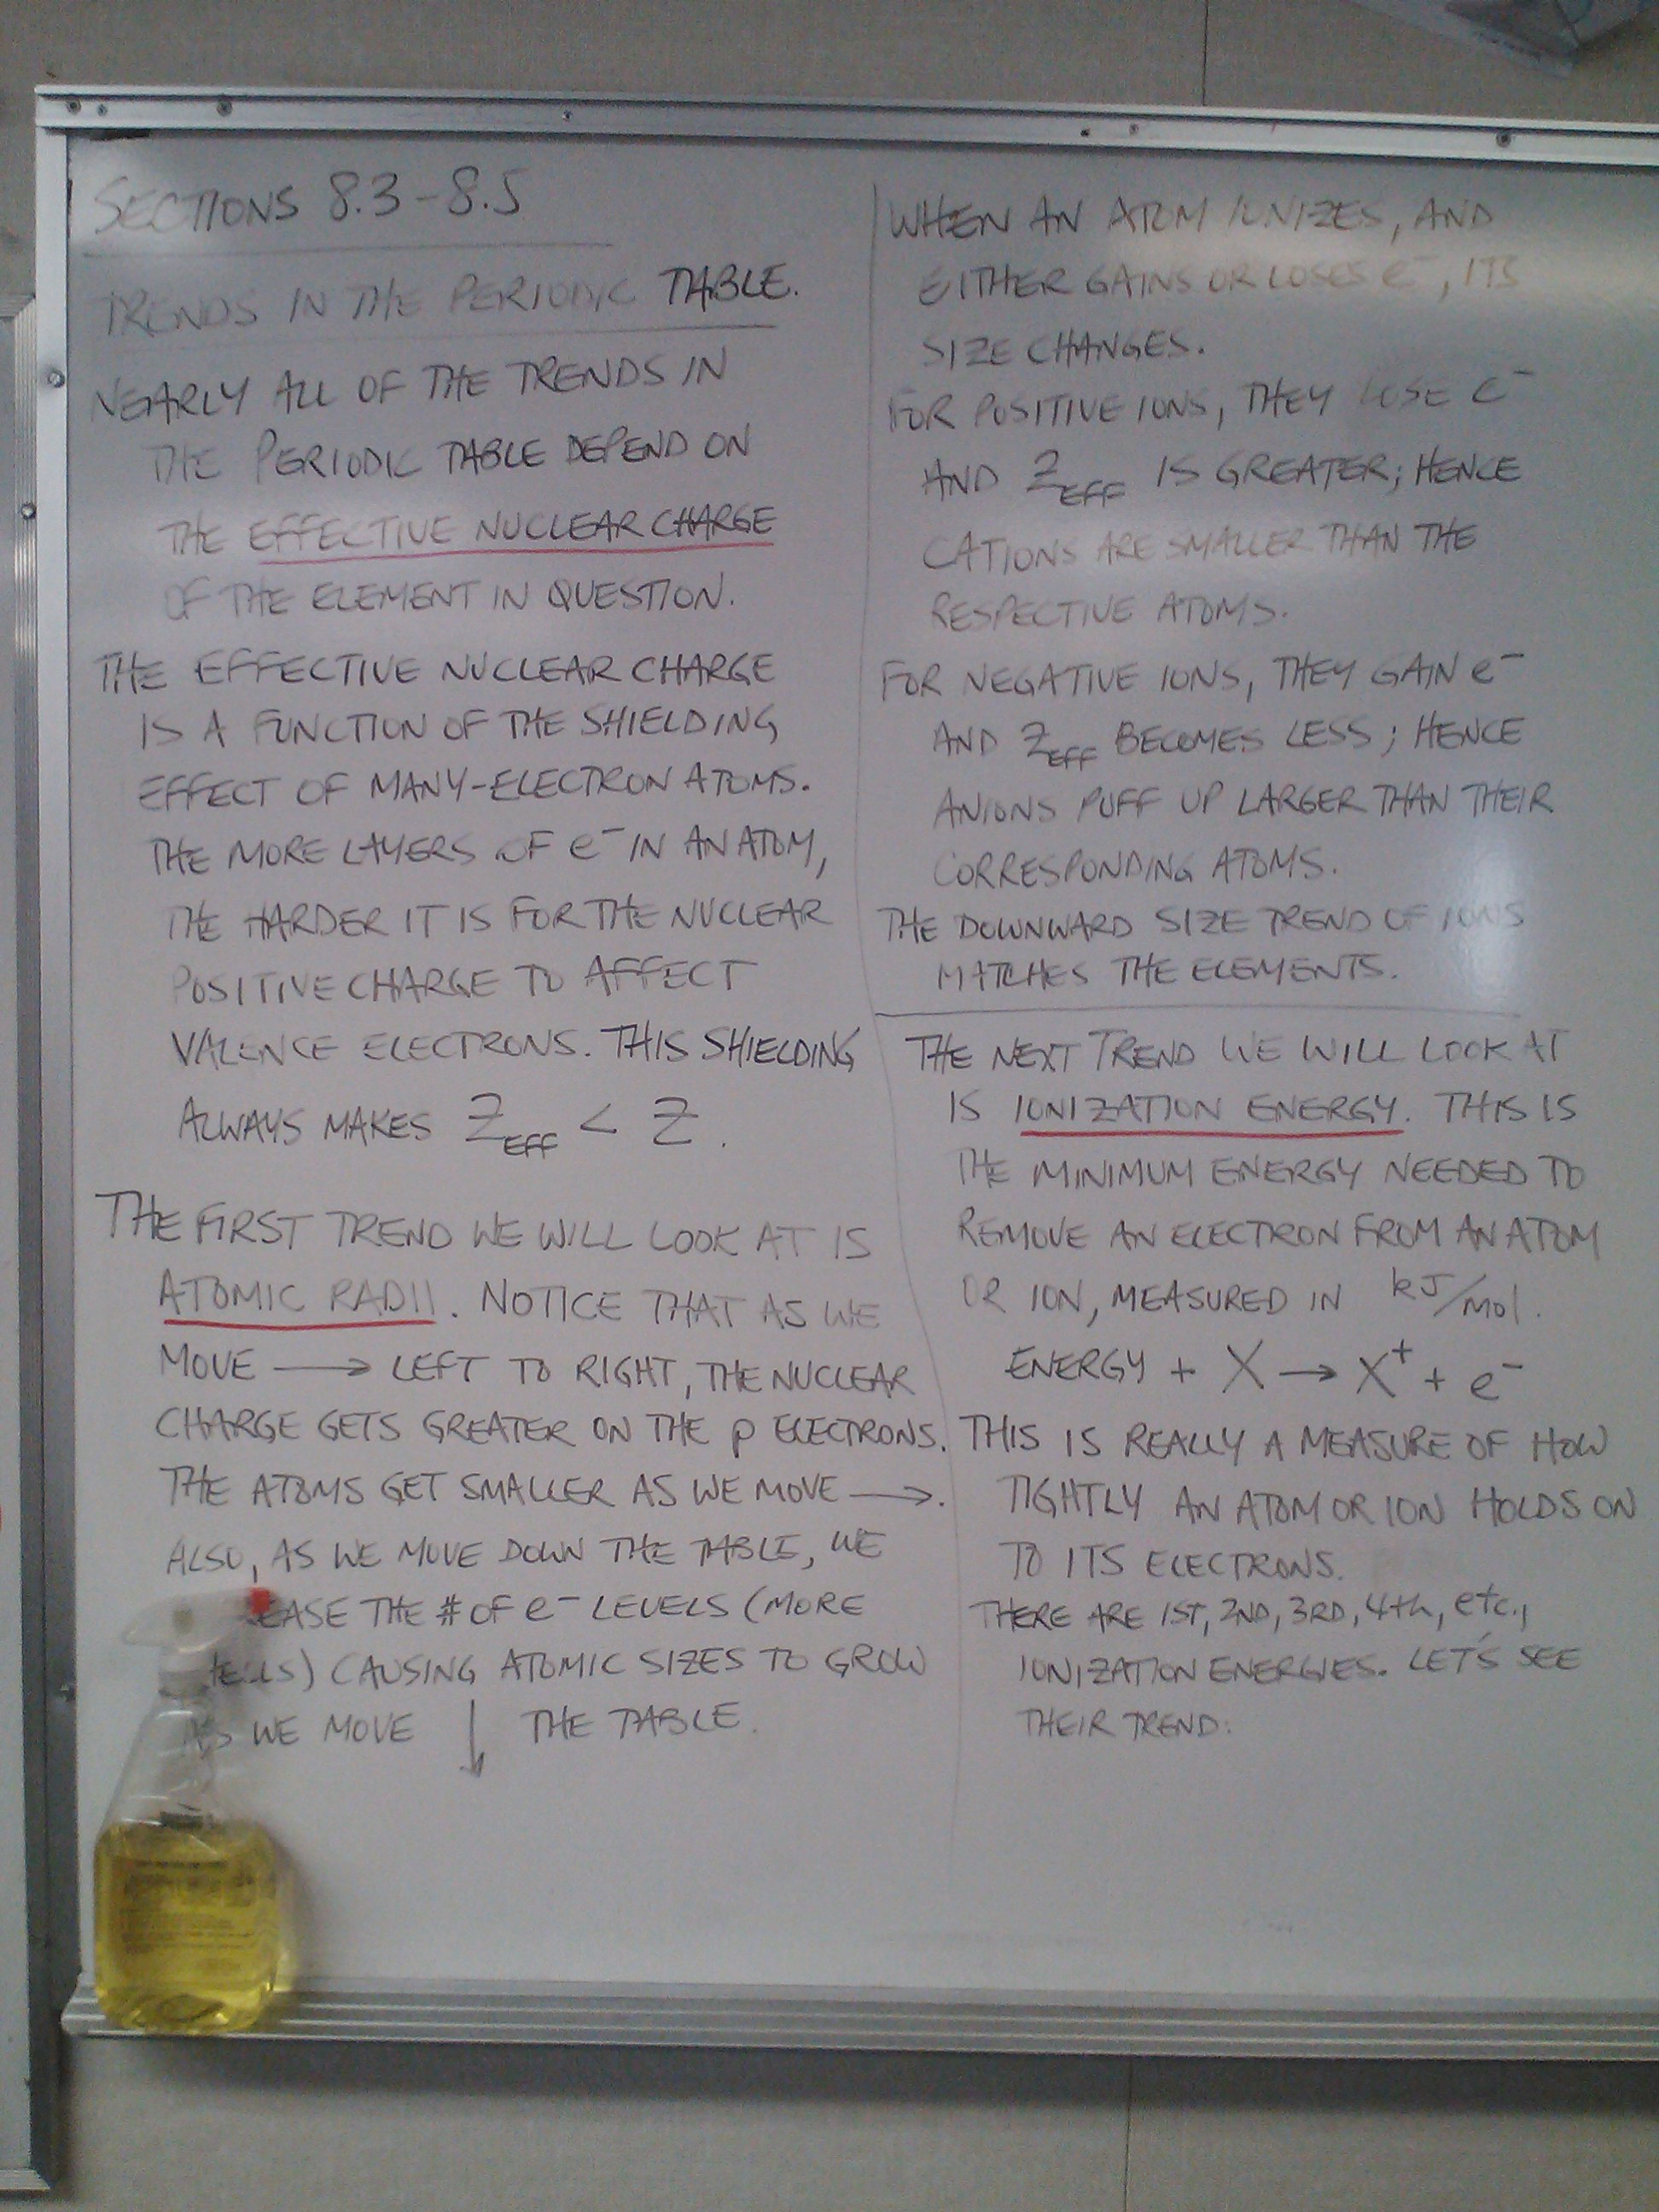 SECTIONS 8.3-8.5
TRENDS IN THE PERIODIC TABLE.
NEARLY ALL OF THE TRENDS IN
THE PERIODIC TABLE DEPEND ON
THE EFFECTIVE NUCLEAR CHARGE
OF THE ELEMENT IN QUESTION.
THE EFFECTIVE NUCLEAR CHARGE
IS A FUNCTION OF THE SHIELDING
EFFECT OF MANY-ELECTRON ATOMS.
THE MORE LAYERS OF e⁻ IN AN ATOM,
THE HARDER IT IS FOR THE NUCLEAR
POSITIVE CHARGE TO AFFECT
VALENCE ELECTRONS. THIS SHIELDING
ALWAYS MAKES Z EFF < Z.
THE FIRST TREND WE WILL LOOK AT IS
ATOMIC RADII. NOTICE THAT AS WE
MOVE → LEFT TO RIGHT, THE NUCLEAR
CHARGE GETS GREATER ON THE p ELECTRONS.
THE ATOMS GET SMALLER AS WE MOVE →.
ALSO, AS WE MOVE DOWN THE TABLE, WE
EASE THE # OF e⁻ LEVELS (MORE
) CAUSING ATOMIC SIZES TO GROW
AS WE MOVE ↓ THE TABLE.
WHEN AN ATOM IONIZES, AND
EITHER GAINS OR LOSES e⁻, ITS
SIZE CHANGES.
FOR POSITIVE IONS, THEY LOSE e⁻
AND Z EFF IS GREATER; HENCE
CATIONS ARE SMALLER THAN THE
RESPECTIVE ATOMS.
FOR NEGATIVE IONS, THEY GAIN e⁻
AND Z EFF BECOMES LESS; HENCE
ANIONS PUFF UP LARGER THAN THEIR
CORRESPONDING ATOMS.
THE DOWNWARD SIZE TREND OF IONS
MATCHES THE ELEMENTS.
THE NEXT TREND WE WILL LOOK AT
IS IONIZATION ENERGY. THIS IS
THE MINIMUM ENERGY NEEDED TO
REMOVE AN ELECTRON FROM AN ATOM
OR ION, MEASURED IN kJ/mol.
ENERGY + X → X⁺ + e⁻
THIS IS REALLY A MEASURE OF HOW
TIGHTLY AN ATOM OR ION HOLDS ON
TO ITS ELECTRONS.
THERE ARE 1ST, 2ND, 3RD, 4th, etc.,
IONIZATION ENERGIES. LET'S SEE
THEIR TREND: